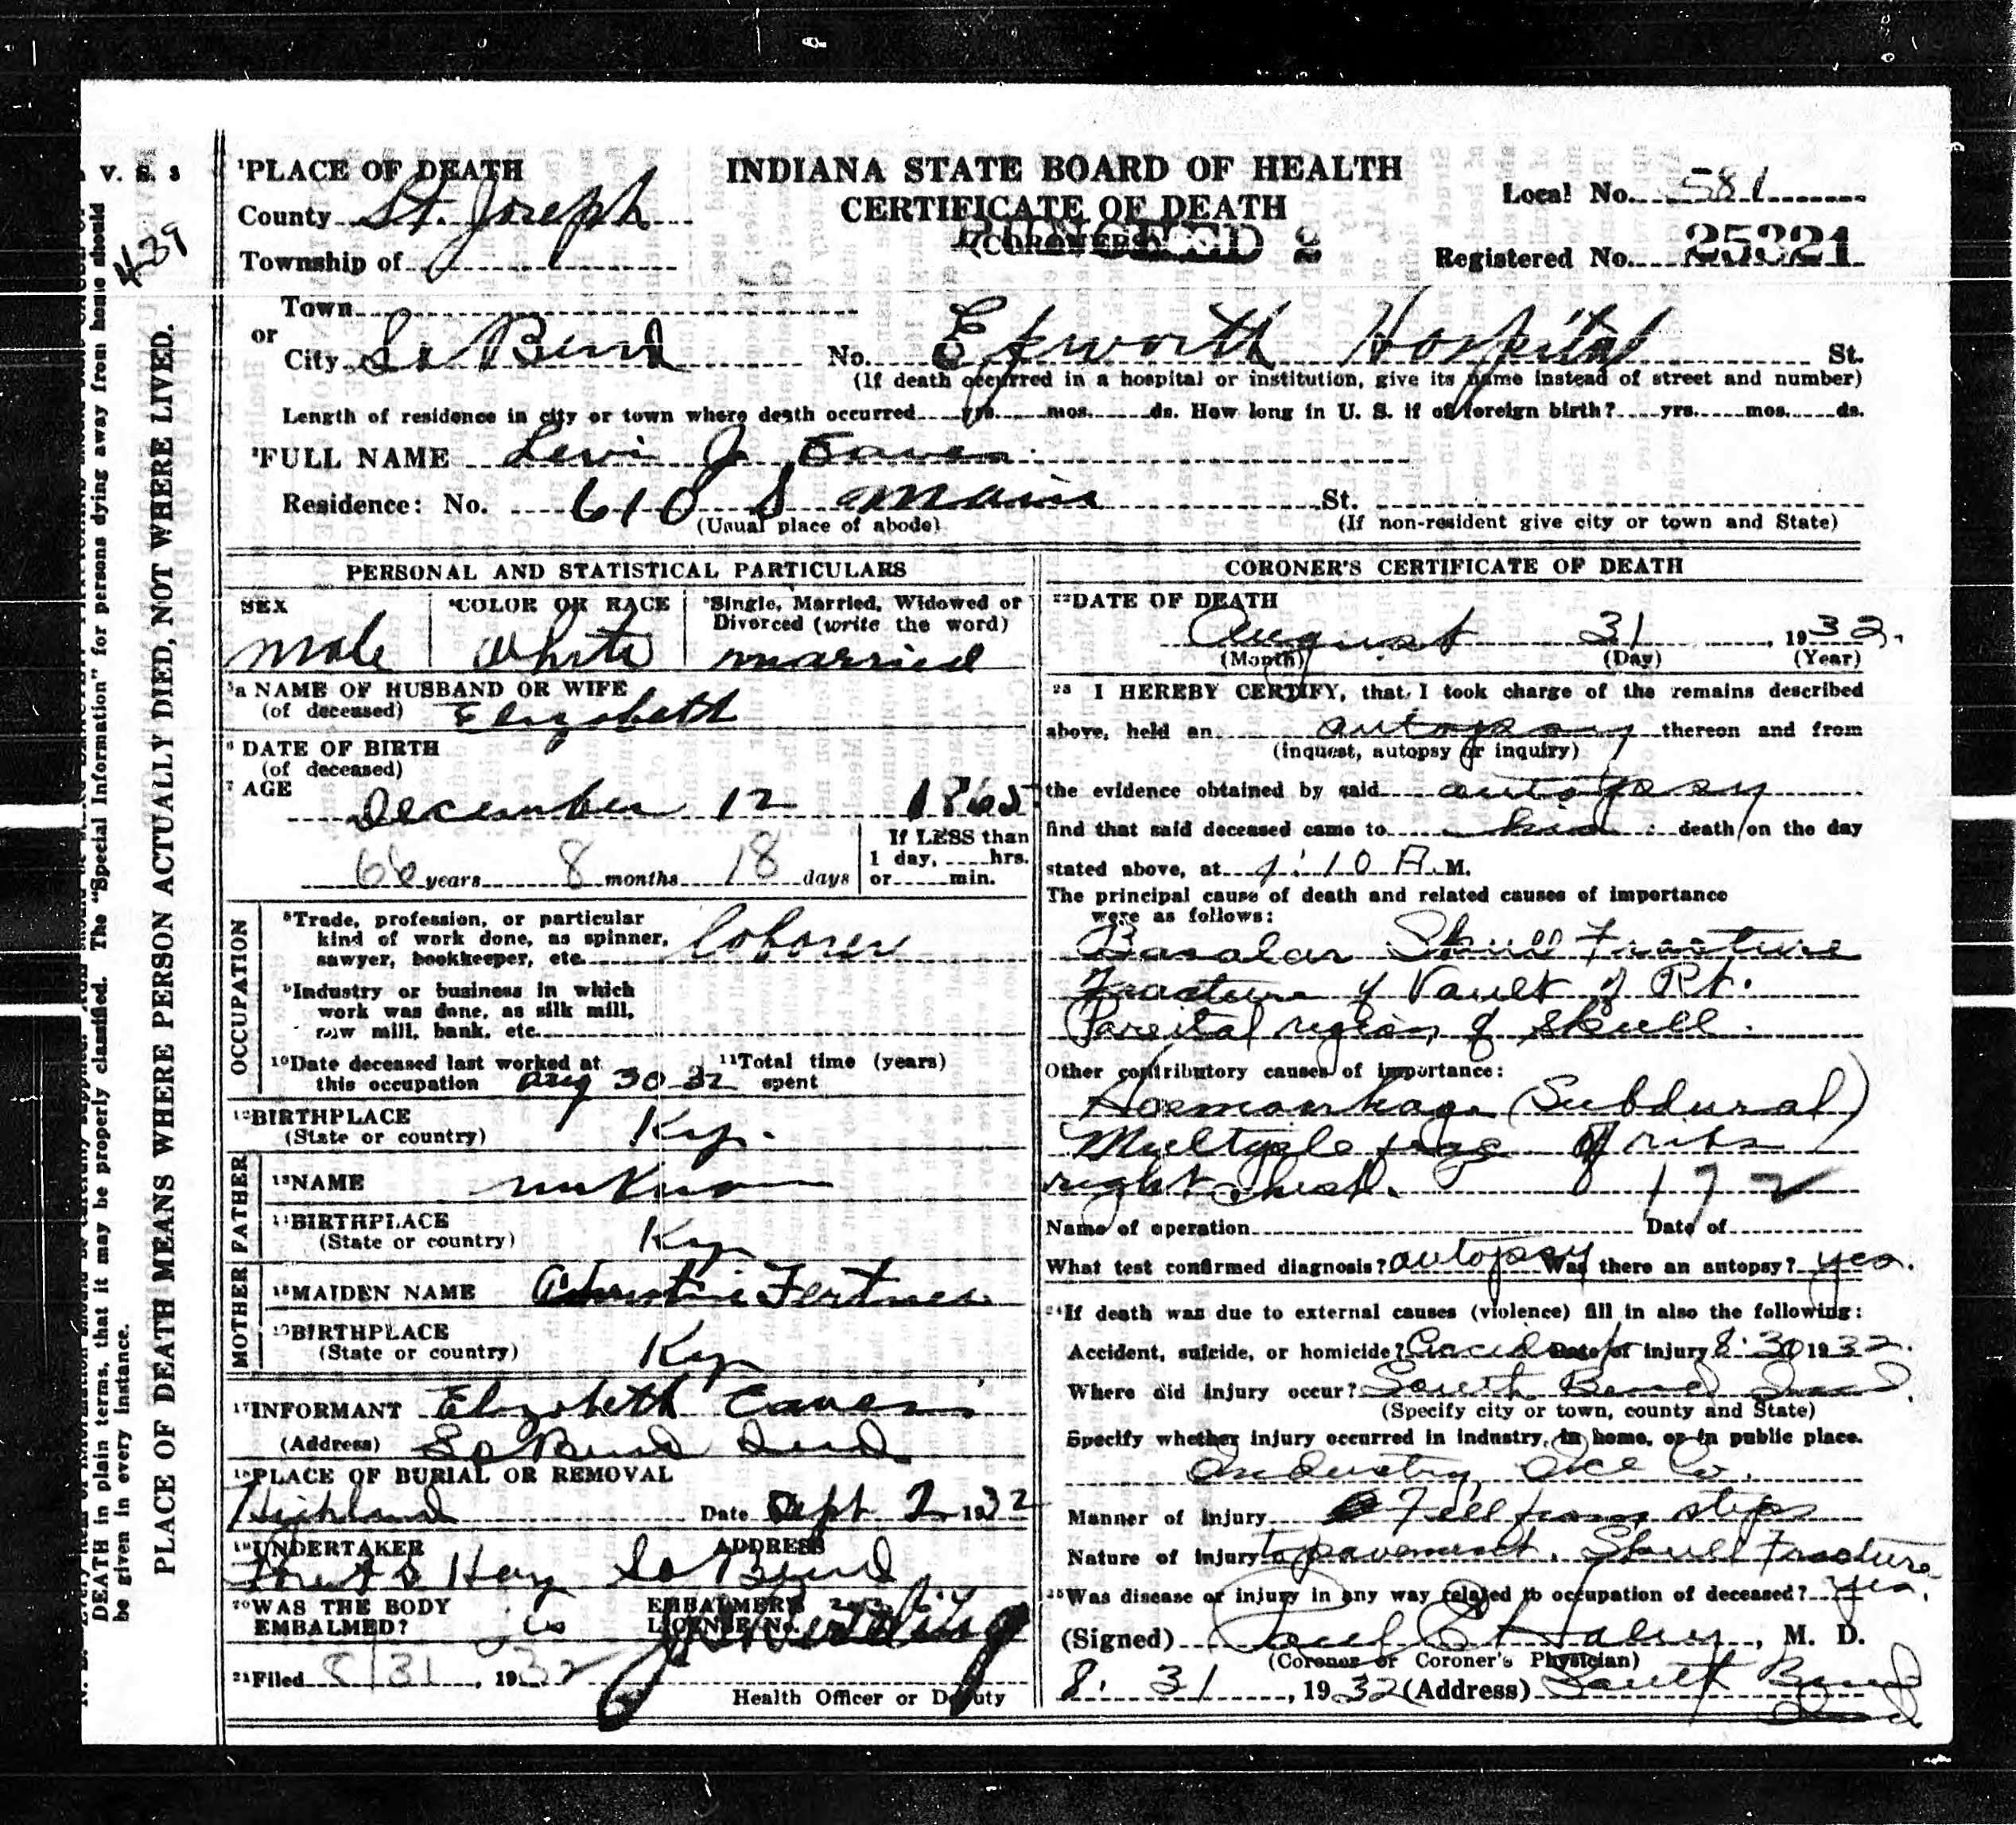 V. S. 3
439
DEATH in plain terms, that it may be properly classified. The "Special Information" for persons dying away from home should
be given in every instance.
PLACE OF DEATH MEANS WHERE PERSON ACTUALLY DIED, NOT WHERE LIVED.
INDIANA STATE BOARD OF HEALTH
CERTIFICATE OF DEATH
(CORONERS)
2
Local No. 581
Registered No. 25321
1PLACE OF DEATH
County St. Joseph
Township of
Town
or
City So Bend No. Epworth Hospital St.
(If death occurred in a hospital or institution, give its name instead of street and number)
Length of residence in city or town where death occurred yrs. mos. ds. How long in U. S. if of foreign birth? yrs. mos. ds.
2FULL NAME Levi J
Residence: No. 610 S Main St.
(Usual place of abode) (If non-resident give city or town and State)
PERSONAL AND STATISTICAL PARTICULARS
SEX
Male
4COLOR OR RACE
White
5Single, Married, Widowed or
Divorced (write the word)
married
5a NAME OF HUSBAND OR WIFE
(of deceased) Elizabeth
6 DATE OF BIRTH
(of deceased)
7 AGE
December 12 1865
66 years 8 months 18 days
If LESS than
1 day, hrs.
or min.
OCCUPATION
8Trade, profession, or particular
kind of work done, as spinner,
sawyer, bookkeeper, etc. laborer
9Industry or business in which
work was done, as silk mill,
saw mill, bank, etc.
10Date deceased last worked at
this occupation Aug 30 32
11Total time (years)
spent
12BIRTHPLACE
(State or country) Ky.
FATHER
13NAME
14BIRTHPLACE
(State or country) Ky
MOTHER
15MAIDEN NAME Christine
16BIRTHPLACE
(State or country) Ky
17INFORMANT Elizabeth
(Address) So Bend Ind
18PLACE OF BURIAL OR REMOVAL
Highland Date Sept 2 1932
19UNDERTAKER ADDRESS
Hay So Bend
20WAS THE BODY
EMBALMED?
EMBALMER'S
LICENSE No.
21Filed 8/31, 1932
Health Officer or Deputy
CORONER'S CERTIFICATE OF DEATH
22DATE OF DEATH
August 31, 1932.
(Month) (Day) (Year)
23 I HEREBY CERTIFY, that I took charge of the remains described
above, held an autopsy thereon and from
(inquest, autopsy or inquiry)
the evidence obtained by said autopsy
find that said deceased came to his death on the day
stated above, at 1:10 A.M.
The principal cause of death and related causes of importance
were as follows:
Basalar Skull Fracture
Fracture of Vault of Rt.
Pareital region of Skull.
Other contributory causes of importance:
Haemorrhage (Subdural)
Multiple of ribs
right chest.
Name of operation Date of
What test confirmed diagnosis? autopsy Was there an autopsy? yes.
24If death was due to external causes (violence) fill in also the following:
Accident, suicide, or homicide? Accident Date of injury 8-30 1932.
Where did injury occur? South Bend Ind.
(Specify city or town, county and State)
Specify whether injury occurred in industry, in home, or in public place.
Industry, Ice Co.
Manner of injury Fell from steps
Nature of injury to pavement. Skull Fracture
25Was disease or injury in any way related to occupation of deceased? yes.
(Signed) M. D.
(Coroner or Coroner's Physician)
8. 31, 1932 (Address) South Bend
Ind